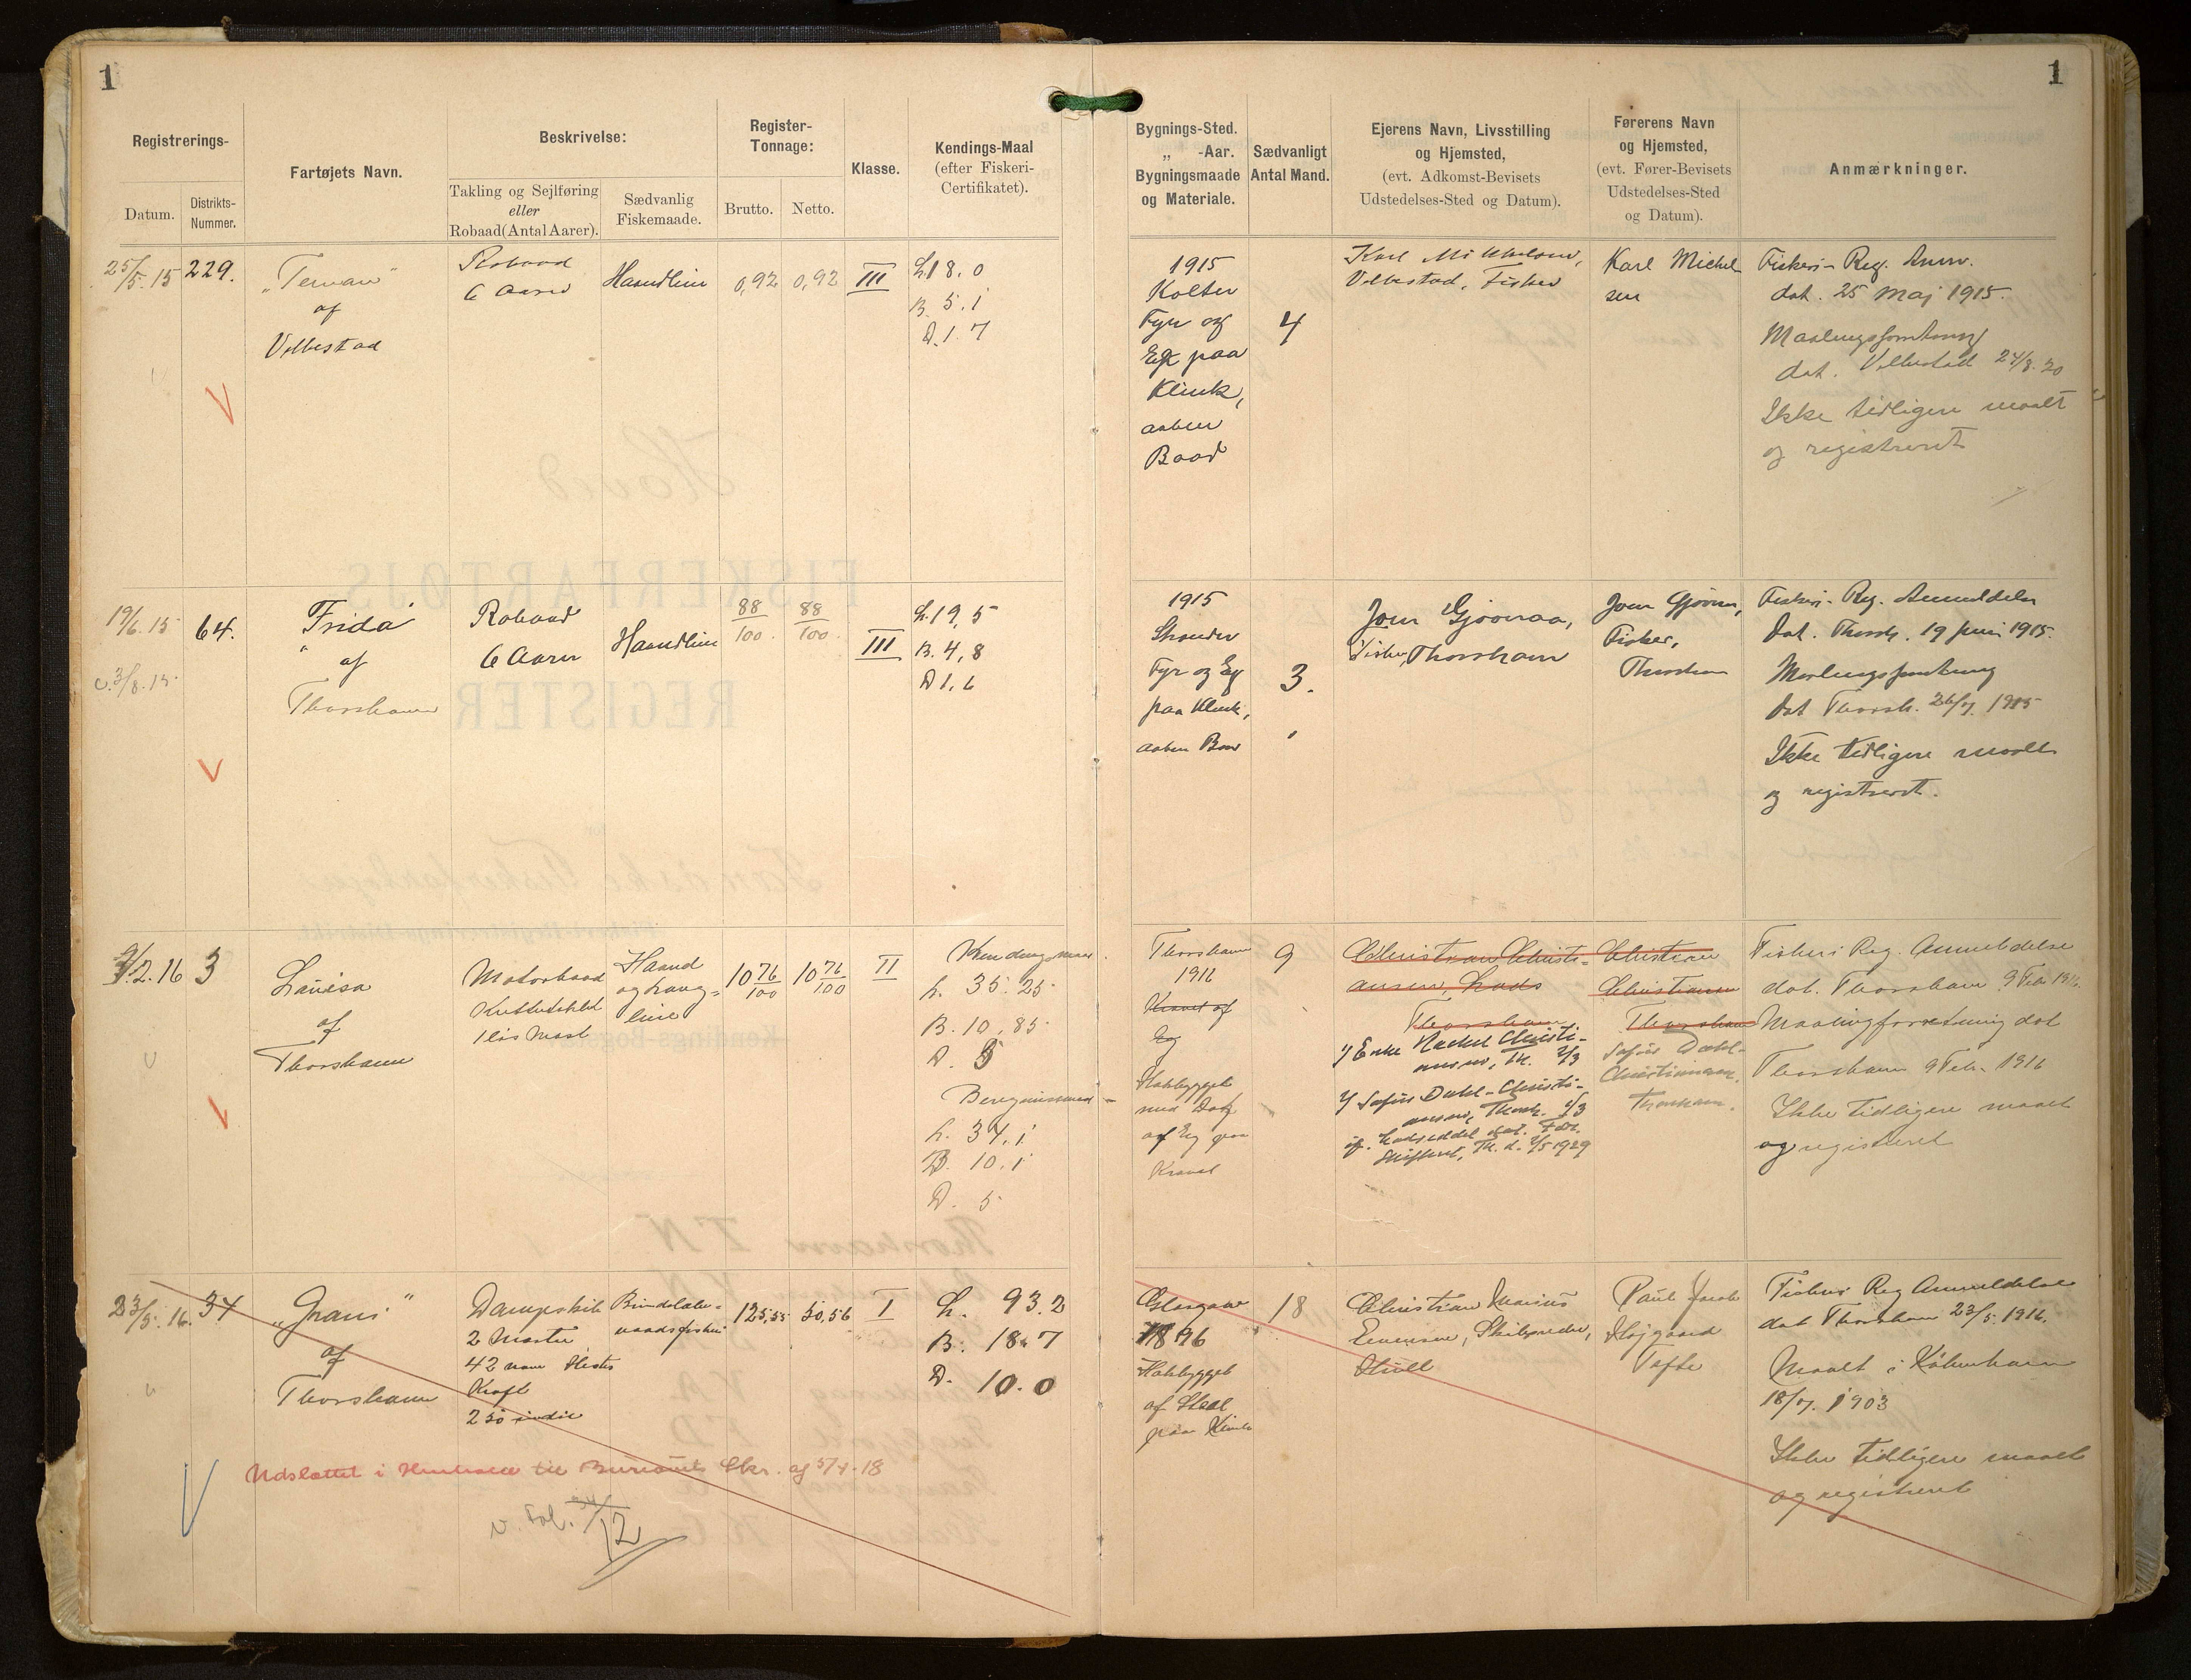 1
1
Registrerings-
Datum.
Distrikts-
Nummer.
Fartøjets Navn.
Beskrivelse:
Takling og Sejlføring
eller
Robaad (Antal Aarer).
Sædvanlig
Fiskemaade.
Register-
Tonnage:
Brutto.
Netto.
Klasse.
Kendings-Maal
(efter Fiskeri-
Certifikatet).
Bygnings-Sted.
„ -Aar.
Bygningsmaade
og Materiale.
Sædvanligt
Antal Mand.
Ejerens Navn, Livsstilling
og Hjemsted,
(evt. Adkomst-Bevisets
Udstedelses-Sted og Datum).
Førerens Navn
og Hjemsted,
(evt. Fører-Bevisets
Udstedelses-Sted
og Datum).
Anmærkninger.
25/5.15
229.
„Ternan“
af
Velbestad
Robaad
6 Aarer
Haandline
0,92
0,92
III
L. 18.0
B. 5.1
D. 1.7
1915
Kolter
Fyr og
Eg paa
Klink,
aaben
Baad
4
Velbestad, Fisker
Karl Michel-
sen
Fiskeri-Reg. Anm.
dat. 25 Maj 1915.
Maalingsforretning
dat. Velbestad 24/8.20
Ikke tidligere maalt
og registreret
19/6.15
64.
3/8.15
„Frida“
af
Thorshavn
Robaad
6 Aarer
Haandline
88/100
88/100
III
L. 19,5
B. 4,8
D 1,6
1915
Strender
Fyr og Eg
paa Klink,
aaben Baad
3.
Fisker, Thorshavn
Fisker,
Thorshavn
Fiskeri-Reg. Anmeldelse
dat. Thorsh. 19 Juni 1915.
Maalingsforretning
dat Thorsh. 26/7. 1915
Ikke tidligere maalt
og registreret.
9/2.16
3
Lauisa
af
Thorshavn
Motorbaad
1 løs Mast
Haand
og Lang-
line
10 76/100
10 76/100
II
L. 35.25
B. 10,85
D. 5
L. 34,1
B. 10.1
D. 5
Thorshavn
1916
Kravel af
Eg
Halvbygget
med Dæk
af Eg paa
Kravel
9
Christian Christi-
ansen, Lods
Thorshavn
1) Enke Rachel Christi-
ansen, Th. 2/3
2) Sofus Dahl-Christi-
ansen, Thorsh. 1/3
Christian
Christiansen
Thorshavn
Sofus Dahl-
Christiansen,
Thorshavn.
Fiskeri Reg. Anmeldelse
dat. Thorshavn 9 Feb 1916.
Maalingforretning dat
Thorshavn 9 Feb. 1916
Ikke tidligere maalt
og registreret
23/5.16.
34
„Grani“
af
Thorshavn
Dampskib
2 Master
42 nom Hestes
Kraft
250 indic
125,55
50,56
I
L. 93.2
B. 18.7
D. 10.0
Glasgow
1896
af Staal
paa Klink
18
Christian Marius
Evensen, Skibsreder,
Paul Jacob
Højgaard
Tofte
Fiskeri Reg Anmeldelse
dat Thorshavn 23/5.1916.
Maalt i København
18/7. 1903
Ikke tidligere maalt
og registreret
Udslettet i Henhold til Bureauets Skr. af 5/4.18
v. Fol. 34/12